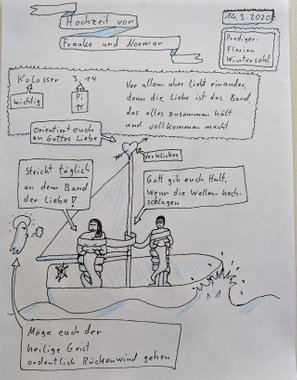 Hochzeit von
Frauke und Norman
14.3.2020
Prediger:
Florian
Wintersohl
Kolosser 3,14
wichtig
Pi
Vor allem aber liebt einander,
denn die Liebe ist das Band,
das alles zusammen hält
und vollkommen macht
Orientiert euch
an Gottes Liebe
Verklicker
Strickt täglich
an dem Band
der Liebe!
Gott gib euch Halt,
wenn die Wellen hoch-
schlagen
Möge euch der
heilige Geist
ordentlich Rückenwind geben